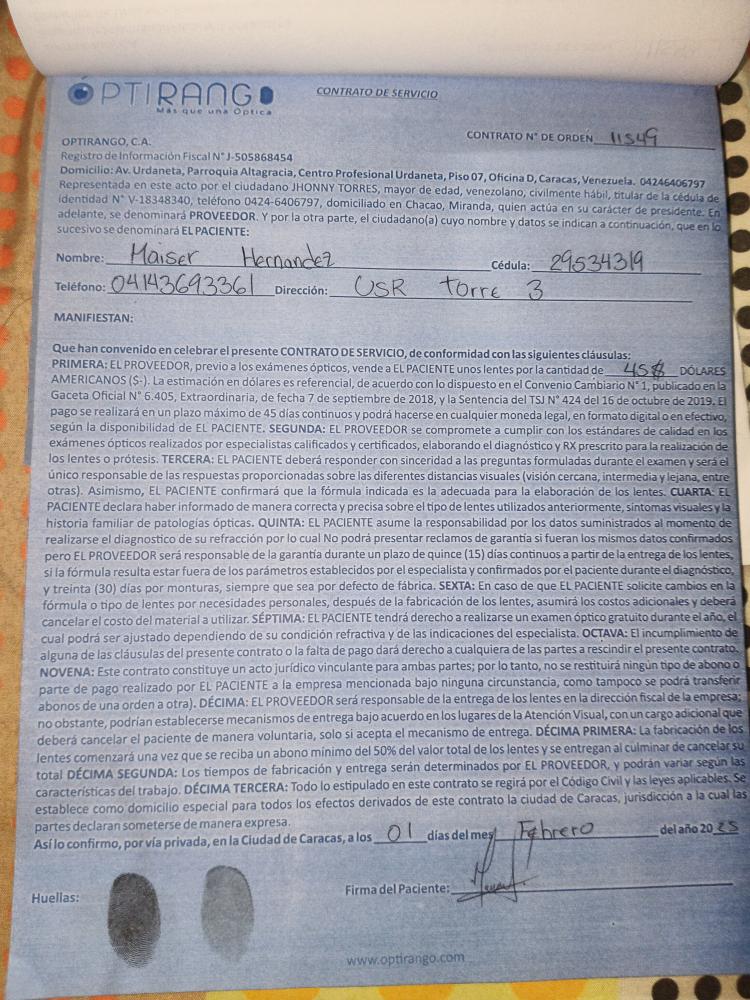 ÓPTIRANGO
Más que una Óptica
CONTRATO DE SERVICIO
CONTRATO N° DE ORDEN 11549
OPTIRANGO, C.A.
Registro de Información Fiscal N° J-505868454
Domicilio: Av. Urdaneta, Parroquia Altagracia, Centro Profesional Urdaneta, Piso 07, Oficina D, Caracas, Venezuela. 04246406797
Representada en este acto por el ciudadano JHONNY TORRES, mayor de edad, venezolano, civilmente hábil, titular de la cédula de
identidad N° V-18348340, teléfono 0424-6406797, domiciliado en Chacao, Miranda, quien actúa en su carácter de presidente. En
adelante, se denominará PROVEEDOR. Y por la otra parte, el ciudadano(a) cuyo nombre y datos se indican a continuación, que en lo
sucesivo se denominará EL PACIENTE:
Nombre: Maiser Hernandez Cédula: 29534319
Teléfono: 04143693361 Dirección: USR torre 3
MANIFIESTAN:
Que han convenido en celebrar el presente CONTRATO DE SERVICIO, de conformidad con las siguientes cláusulas:
PRIMERA: EL PROVEEDOR, previo a los exámenes ópticos, vende a EL PACIENTE unos lentes por la cantidad de 45$ DÓLARES
AMERICANOS ($-). La estimación en dólares es referencial, de acuerdo con lo dispuesto en el Convenio Cambiario N° 1, publicado en la
Gaceta Oficial N° 6.405, Extraordinaria, de fecha 7 de septiembre de 2018, y la Sentencia del TSJ N° 424 del 16 de octubre de 2019. El
pago se realizará en un plazo máximo de 45 días continuos y podrá hacerse en cualquier moneda legal, en formato digital o en efectivo,
según la disponibilidad de EL PACIENTE. SEGUNDA: EL PROVEEDOR se compromete a cumplir con los estándares de calidad en los
exámenes ópticos realizados por especialistas calificados y certificados, elaborando el diagnóstico y RX prescrito para la realización de
los lentes o prótesis. TERCERA: EL PACIENTE deberá responder con sinceridad a las preguntas formuladas durante el examen y será el
único responsable de las respuestas proporcionadas sobre las diferentes distancias visuales (visión cercana, intermedia y lejana, entre
otras). Asimismo, EL PACIENTE confirmará que la fórmula indicada es la adecuada para la elaboración de los lentes. CUARTA: EL
PACIENTE declara haber informado de manera correcta y precisa sobre el tipo de lentes utilizados anteriormente, síntomas visuales y la
historia familiar de patologías ópticas. QUINTA: EL PACIENTE asume la responsabilidad por los datos suministrados al momento de
realizarse el diagnostico de su refracción por lo cual No podrá presentar reclamos de garantía si fueran los mismos datos confirmados
pero EL PROVEEDOR será responsable de la garantía durante un plazo de quince (15) días continuos a partir de la entrega de los lentes,
si la fórmula resulta estar fuera de los parámetros establecidos por el especialista y confirmados por el paciente durante el diagnóstico,
y treinta (30) días por monturas, siempre que sea por defecto de fábrica. SEXTA: En caso de que EL PACIENTE solicite cambios en la
fórmula o tipo de lentes por necesidades personales, después de la fabricación de los lentes, asumirá los costos adicionales y deberá
cancelar el costo del material a utilizar. SÉPTIMA: EL PACIENTE tendrá derecho a realizarse un examen óptico gratuito durante el año, el
cual podrá ser ajustado dependiendo de su condición refractiva y de las indicaciones del especialista. OCTAVA: El incumplimiento de
alguna de las cláusulas del presente contrato o la falta de pago dará derecho a cualquiera de las partes a rescindir el presente contrato.
NOVENA: Este contrato constituye un acto jurídico vinculante para ambas partes; por lo tanto, no se restituirá ningún tipo de abono o
parte de pago realizado por EL PACIENTE a la empresa mencionada bajo ninguna circunstancia, como tampoco se podrá transferir
abonos de una orden a otra). DÉCIMA: EL PROVEEDOR será responsable de la entrega de los lentes en la dirección fiscal de la empresa;
no obstante, podrían establecerse mecanismos de entrega bajo acuerdo en los lugares de la Atención Visual, con un cargo adicional que
deberá cancelar el paciente de manera voluntaria, solo si acepta el mecanismo de entrega. DÉCIMA PRIMERA: La fabricación de los
lentes comenzará una vez que se reciba un abono mínimo del 50% del valor total de los lentes y se entregan al culminar de cancelar su
total DÉCIMA SEGUNDA: Los tiempos de fabricación y entrega serán determinados por EL PROVEEDOR, y podrán variar según las
características del trabajo. DÉCIMA TERCERA: Todo lo estipulado en este contrato se regirá por el Código Civil y las leyes aplicables. Se
establece como domicilio especial para todos los efectos derivados de este contrato la ciudad de Caracas, jurisdicción a la cual las
partes declaran someterse de manera expresa.
Así lo confirmo, por vía privada, en la Ciudad de Caracas, a los 01 días del mes Febrero del año 2025
Huellas:
Firma del Paciente:
www.optirango.com